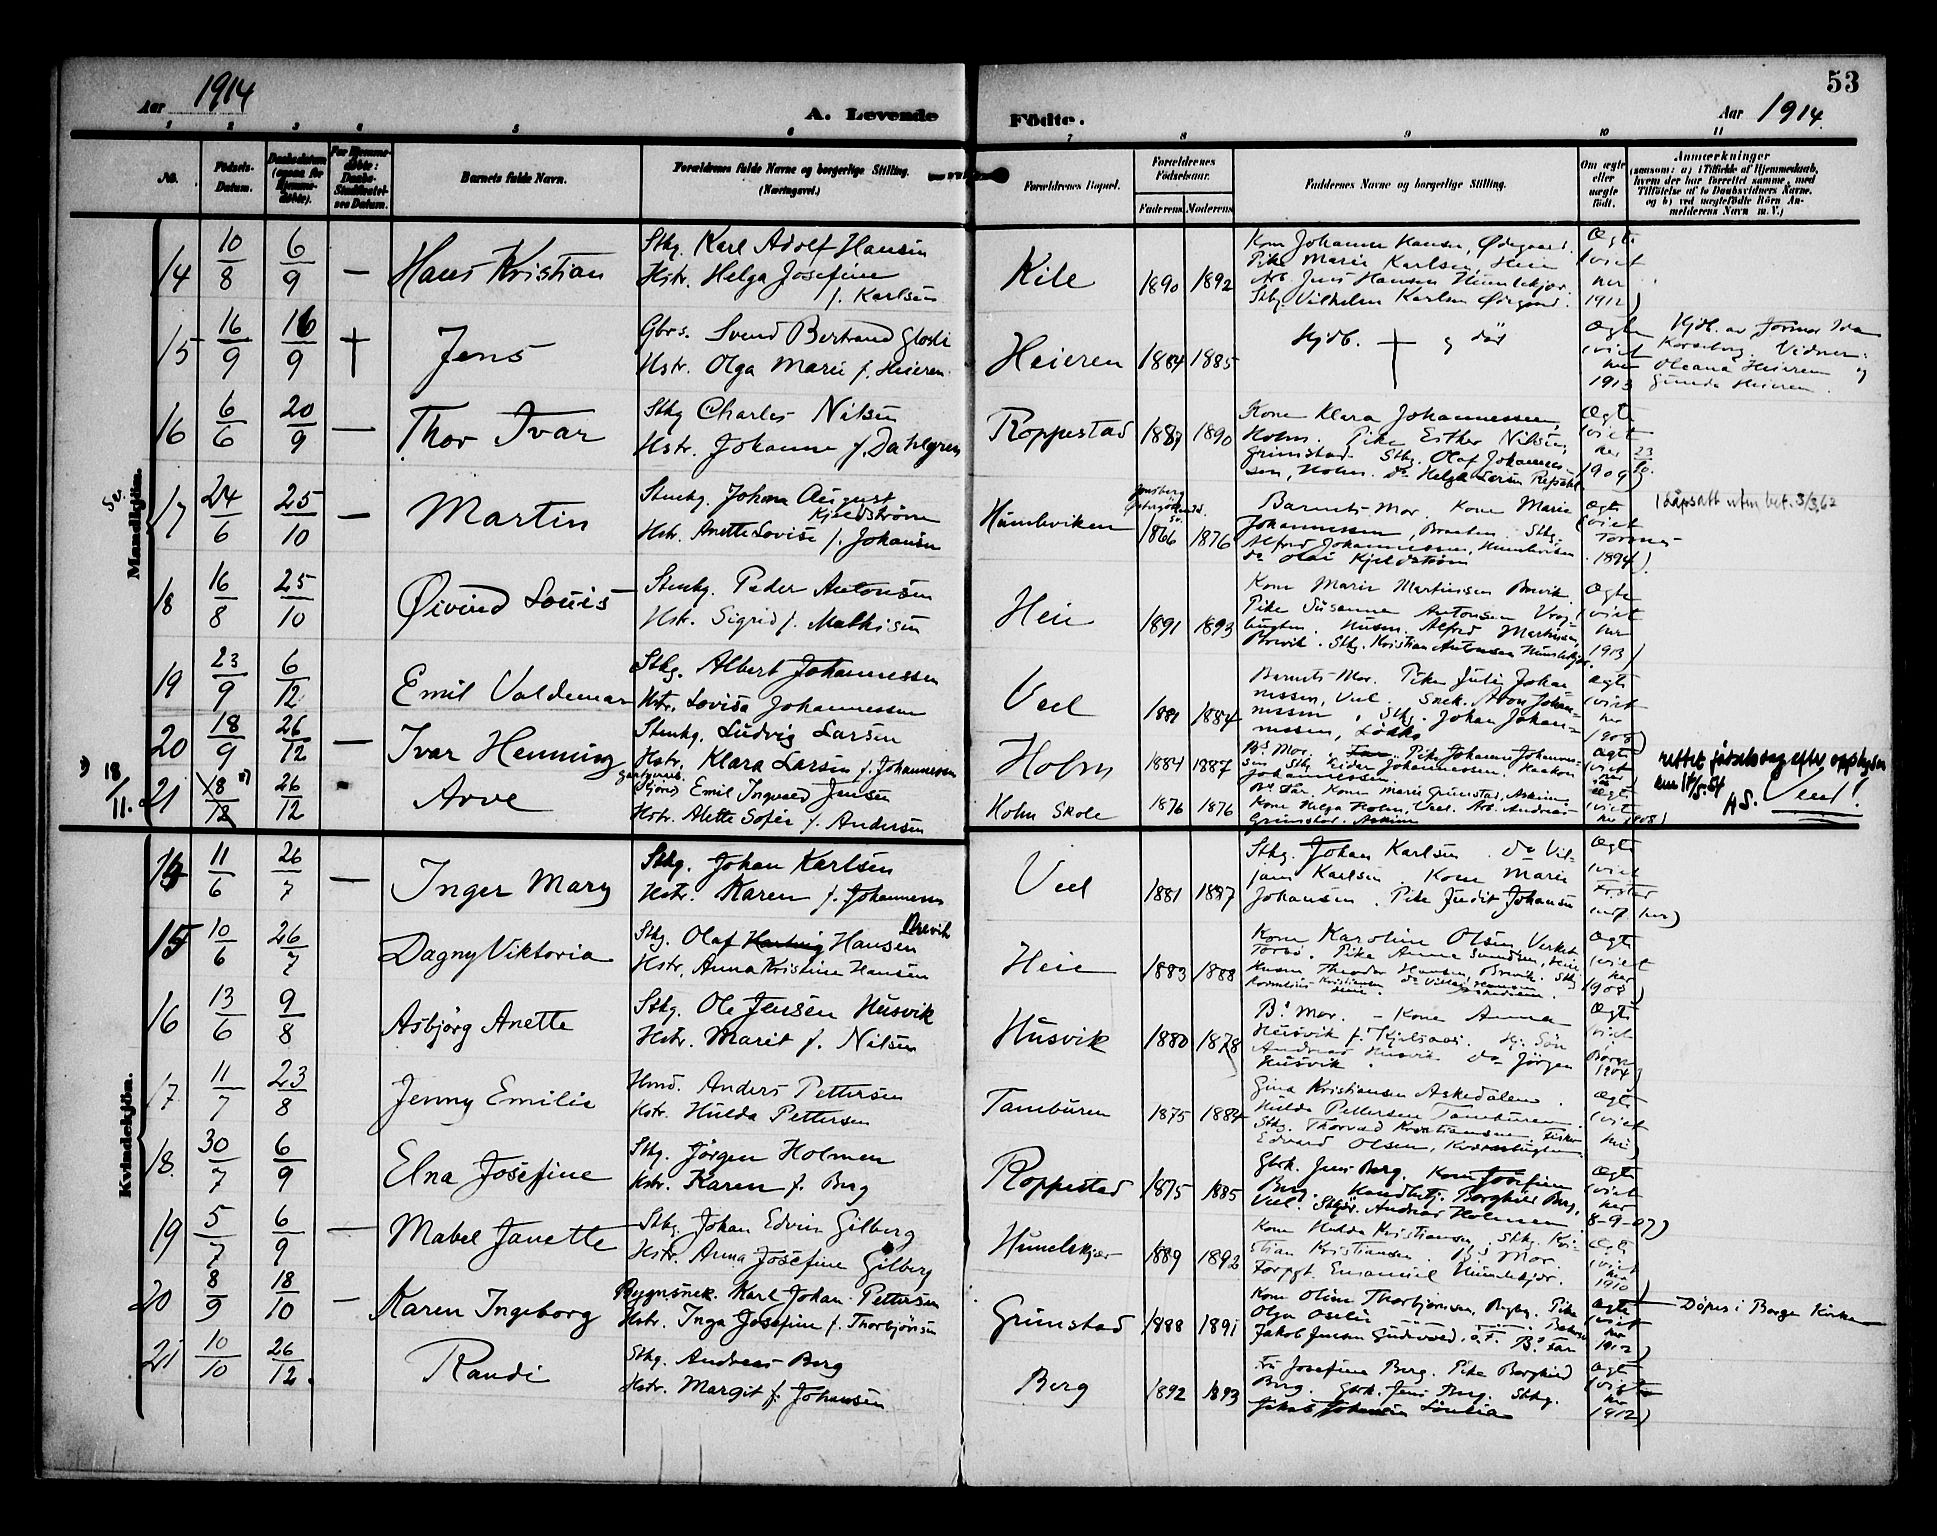 Aar 1914
A. Levende
Födte.
Aar 1914.
53
1 2 3 4 5 6 7 8 9 10 11
No.
Födsels-Datum.
Daabsdatum (ogsaa for Hjemmedöbte).
For Hjemmedöbte: Daabs-Stadfæstelsens Datum.
Barnets fulde Navn.
Forældrenes fulde Navne og borgerlige Stilling. (Næringsvei.)
Forældrenes Bopæl.
Forældrenes Födselsaar.
Faderens Moderens
Faddernes Navne og borgerlige Stilling.
Om ægte eller uægte födt.
Anmærkninger
(saasom: a) i Tilfælde af Hjemmedaab, hvem der har forrettet samme, med Tilföielse af to Daabsvidners Navne, og b) ved uægtefödte Börn Anmelderens Navn m. V.)
Mandkjön.
14 10/8 6/9 — Hans Kristian
Sthg. Karl Adolf Hansen
Hstr. Helga Josefine
f. Karlsen
Kile 1890 1892
Kone Johanne Hansen, Ødegaard.
Pike Marie Karlsen, Heie
Arb. Jens Hansen Hunslekjær.
Sthg. Vilhelm Karlsen Ødegaard.
Ægte
(viet
her
1912)
15 16/9 16/9 † Jens
Gbrs. Svend Bertrand
Hstr. Olga Marie f. Heieren
Heieren 1884 1885
Hjdb. † og död
Ægte
(viet
her
1913
Hjdb. av Jormor Ida
Vidner:
Oleana Heieren og
Gunda Heieren.
16 6/6 20/9 — Thor Ivar
Sthg Charles Nilsen
Hstr. Johanne f. Dahlgren
Roppestad 1887 1890
Kone Klara Johannessen,
Holm. Pike Esther Nilsen,
Grimstad. Sthg. Olaf Johannes-
sen, Holm. do Helge
Ægte
(viet
her 23/10.
1909)
Sv.
17 24/6 25/10 — Martin
Stenhg. Johan August
Kjeldström
Hstr. Anette Lovise f. Johansen
Hunebviken 1866 1876
Barnets Mor. Kone Marie
Johannessen, Braaten. Sthg.
Alfred Johannessen, Hunebviken
do Olai Kjeldström
Ægte
(viet
Torsnes
1894).
3/3,62
18 16/8 25/10 Øivind Louis
Stenhg. Peder Antonsen
Hstr. Sigrid f. Mathisen
Heie 1891 1893
Kone Marie Martinsen Brevik
Pike Susanne Antonsen
Husm. Alfred Martinsen,
Brevik. Sthg. Kristian Antonsen Hunslekjær.
Ægte
(viet
her
1913)
19 23/9 6/12 Emil Valdemar
Sthg. Albert Johannessen
Hstr. Lovisa Johannessen
Veel 1881 1884
Barnets Mor. Pike Julie Johan-
nessen, Veel. Snek. Aron Johan-
nessen, Sthg. Johan Johan-
nessen, Lökke
Ægte
(viet
her
1908)
20 18/9 26/12 — Ivar Henning
Stenhg. Ludvig Larsen
Hstr. Klara Larsen f. Johannessen
Holm 1884 1887
Bs Mor. Pike Johanne Johannes-
sen Sthg. Johannessen, Haakon
Johannessen.
Ægte
(viet
her
rettet födselsdag efter opplysn.
A.S. Veel!
×) 18/11.
21 18/12 ×) 26/12 Arve
Emil Ingvald Jensen
Hstr. Alette Sofie f. Andersen
Holm Skole 1876 1876
Bs Far. Kone Marie Grimstad, Askim
Kone Helga Holm, Veel. Arb. Andreas
Grimstad. Askim
Ægte
(viet
her 1908)
Kvindekjön.
14 11/6 26/7 — Inger Mary
Sthg. Johan Karlsen
Hstr. Karen f. Johannessen
Veel 1881 1887
Sthg. Johan Karlsen. do Vil-
jam Karlsen. Kone Marie
Johansen. Pike Judit Johansen
Ægte
(viet
15 10/6 26/7 Dagny Viktoria
Brevik
Sthg. Olaf Hartvig Hansen
Hstr. Anna Kristine Hansen
Heie 1883 1888
Kone Karoline Olsen, Verket
Torsö. Pike Anna Svendsen, Heie
Husm. Theodor Hansen, Brevik. Sthg
Kornelius Kristiansen
Ægte
(viet
her
1908)
16 13/6 9/8 Asbjörg Anette
Sthg. Ole Jensen Husvik
Hstr. Marit f. Nilsen
Husvik 1880 1878
Bs Mor. – Kone Anna
Husvik f. Hj. Sön
Andreas Husvik. do Jörgen
Husvik.
Ægte
(viet
i
Borge
1904)
17 11/7 23/8 Jenny Emilie
Hmd. Anders Pettersen
Hstr. Hulda Pettersen
Tamburen 1875 1884
Gina Kristiansen Askedalen.
Hulda Pettersen Tamburen.
Sthg. Thorvald Kristiansen
Edvard Olsen,
Ægte
(viet
her)
18. 30/7 6/9 Elna Josefine
Sthg. Jörgen Holmen
Hstr. Karen f. Berg
Roppestad 1875 1885
Gbrk. Jens Berg. Kone Josefine
Berg. Handlbtj. Borghild Berg,
Veel. Andreas Holmen.
Ægte
(viet
her
8-9-07)
19 5/7 6/9 — Mabel Janette
Sthg Johan Edvin Gilberg
Hstr. Anna Josefine Gilberg
Hunslekjær 1889 1892
Kone Hulda Kristiansen, Sthg. Kri-
stian Kristiansen Bs Mor.
Forpgt. Emanuel Hunslekjær.
Ægte
(viet
her
1910)
20 8/9 18/10 — Karen Ingeborg
Bygnsnek. Karl Johan Pettersen
Hstr. Inga Josefine f. Thorbjörnsen
Grimstad 1888 1891
Kone Oline Thorbjörnsen, Pike
Olga Oselie
Jakob Jensen B. Far
Ægte
(viet
her
1912)
Döpes i Borge Kirke
21 10/10 26/12. Randi
Sthg. Andreas Berg
Hstr. Margit f. Johansen
Berg 1892 1893
Fru Josefine Berg. Pike Borghild
Berg. Gbrk. Jens Berg. Sthg.
Jakob Johansen
Ægte
(viet
her
1912)